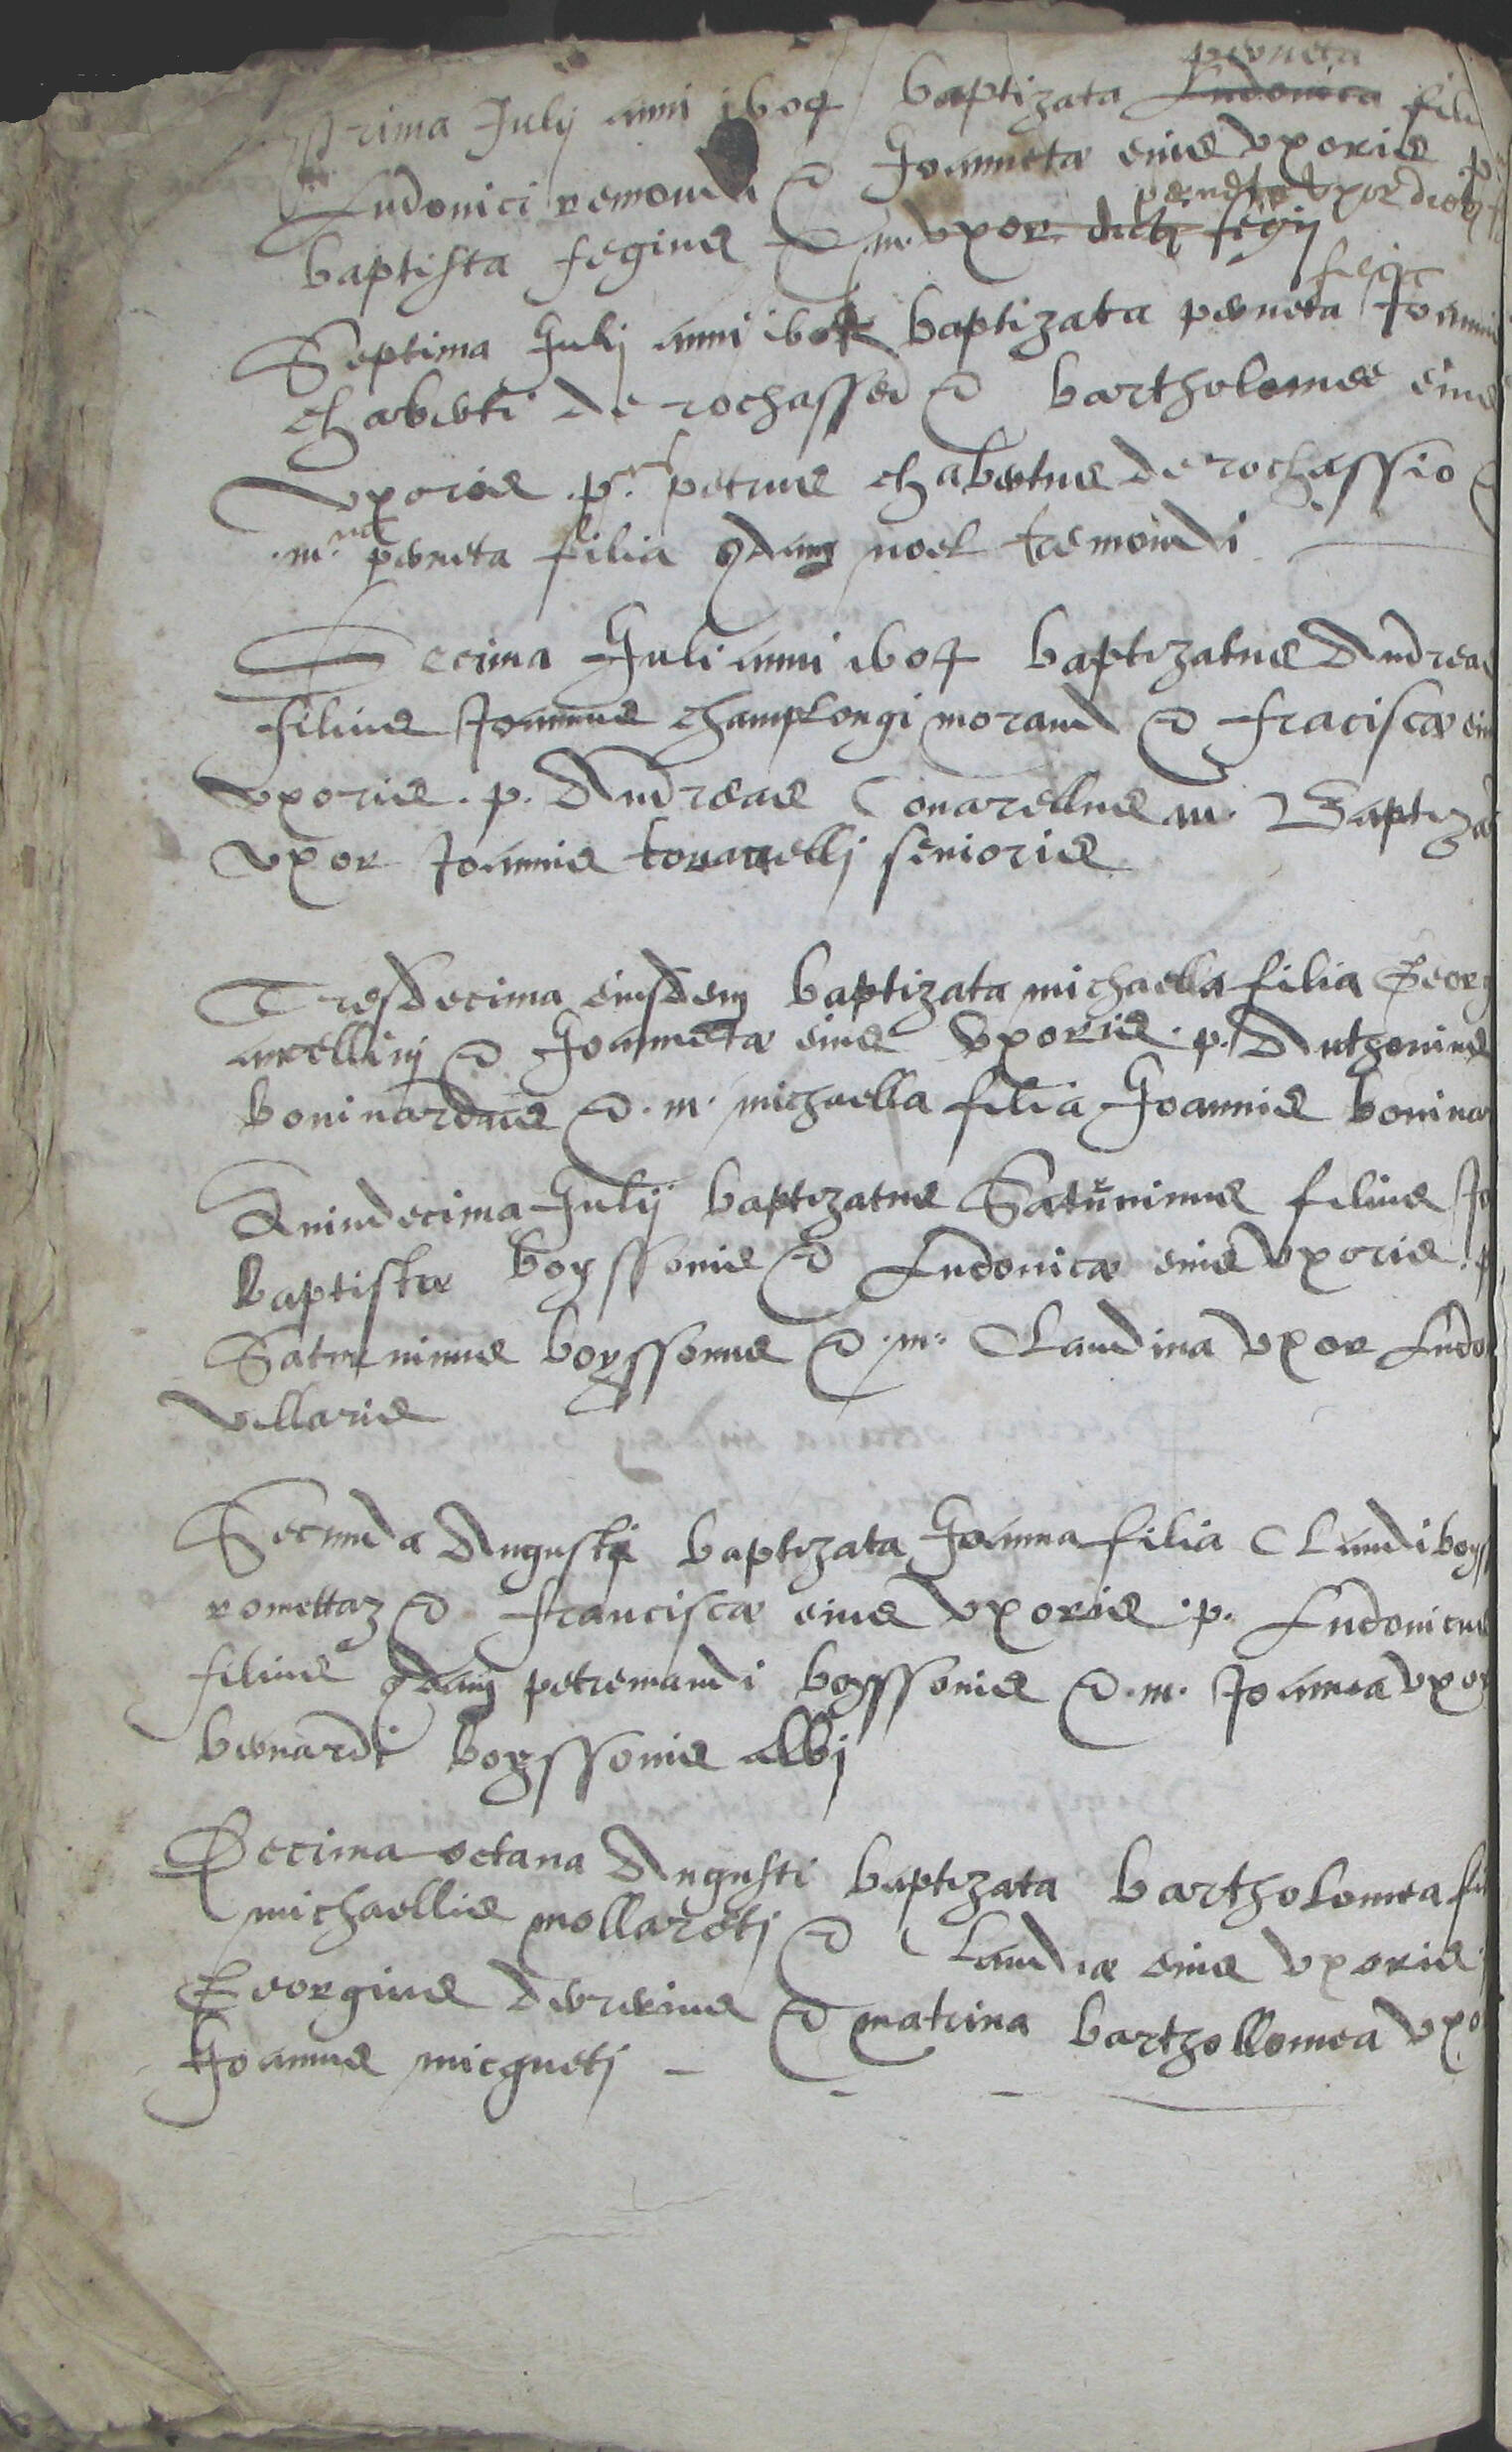 perneta
Prima Julij anni 1604 baptizata Ludovica fili
Ludovici remondi & Joannetæ eius uxoris p.
perneta uxor dicti
baptista fegius & m. uxor dicti fegij
filia
Septima Julij anni 1604 baptizata perneta Joannis
chaberti de rochasseu & bartholomee eius
uxoris .p. petrus chabertus de rochassio &
.m.na perneta filia qdam noel tremondi
Decima Juli anni 1604 baptizatus Andreas
filius Joannis champlongi morand & fraciscæ eiu
uxoris .p. Andreas Covarellus m. Baptiza
uxor Joannis covarelli senioris
Tresdecima eiusdem baptizata michaella filia Georg
avrellini & Joannetæ eius uxoris .p. Anthonius
boninardus & .m. michaella filia Joannis boninar
Quindecima Julij baptizatus Saturninus filius Jo
baptistæ boyssonis & Ludovicæ eius uxoris .p
Saturninus boyssonus & .m. Claudina uxor Ludo
villaris
Secunda Augusti baptizata Joanna filia Claudi boyss
romettaz & franciscæ eius uxoris .p. Ludovicus
filius qdam petremandi boyssonis & .m. Joannea uxor
bernardi boyssonis albi
Decima octava Augusti baptizata bartholomea fi
michaellis mollareti & Claudiæ eius uxoris
Georgius & matrina barthollomea uxo
Joannis micgneti